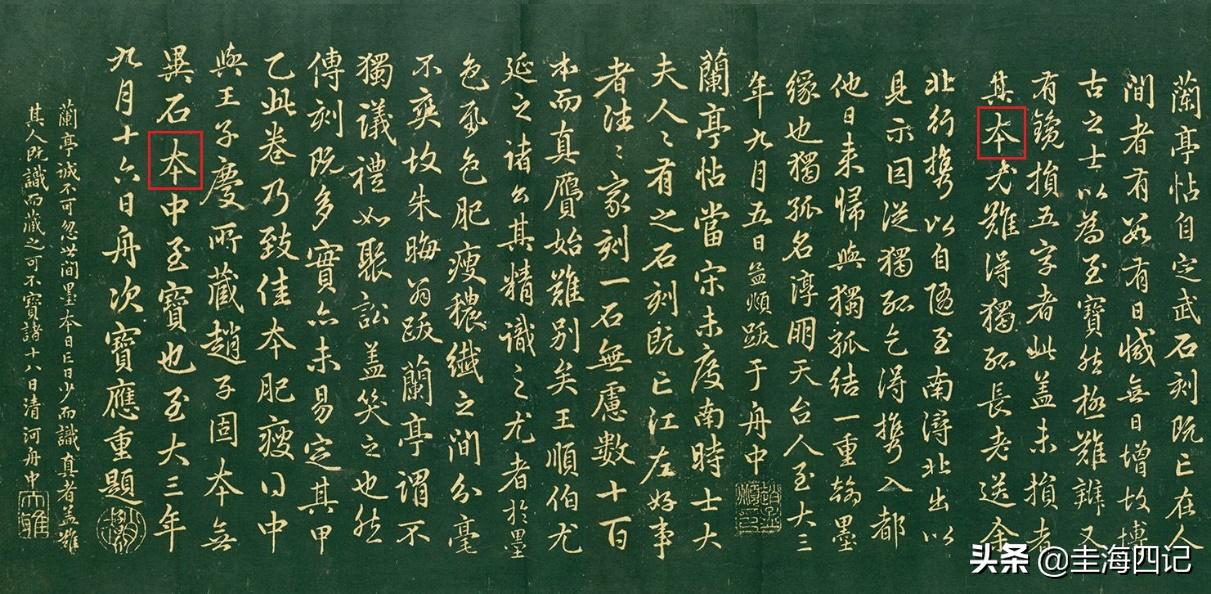 蘭亭帖自定武石刻既亡在人
間者有數有日減無日增故博
古之士以為至寶然極難辨又
有鐫損五字者此蓋未損者
其本尤難得獨孤長老送余
北行攜以自隨至南潯北出以
見示因從獨孤乞得攜入都
他日來歸與獨孤結一重翰墨
緣也獨孤名淳朋天台人至大三
年九月五日孟頫跋于舟中
蘭亭帖當宋未度南時士大
夫人〻有之石刻既亡江左好事
者往〻家刻一石無慮數十百
本而真贋始難別矣王順伯尤
延之諸公其精識之尤者於墨
色氣色肥瘦穠纖之間分毫
不爽故朱晦翁跋蘭亭謂不
獨議禮如聚訟蓋笑之也然
傳刻既多實亦未易定其甲
乙此卷乃致佳本肥瘦得中
與王子慶所藏趙子固本無
異石本中至寶也至大三年
九月十六日舟次寶應重題
蘭亭誠不可忽世間墨本日亡日少而識真者蓋難
其人既識而藏之可不寶諸十八日清河舟中
头条 @圭海四记